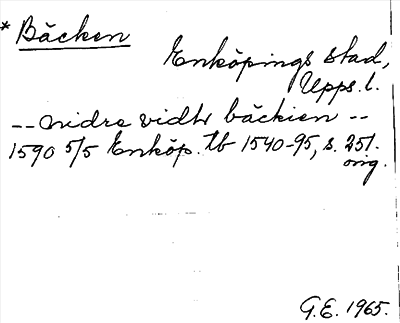 * Bäcken
Enköpings stad,
Upps. l.
-- nidre vidhr bäckien --
1590 5/5 Enköp. tb 1540-95, s. 251.
orig.
G.E. 1965.